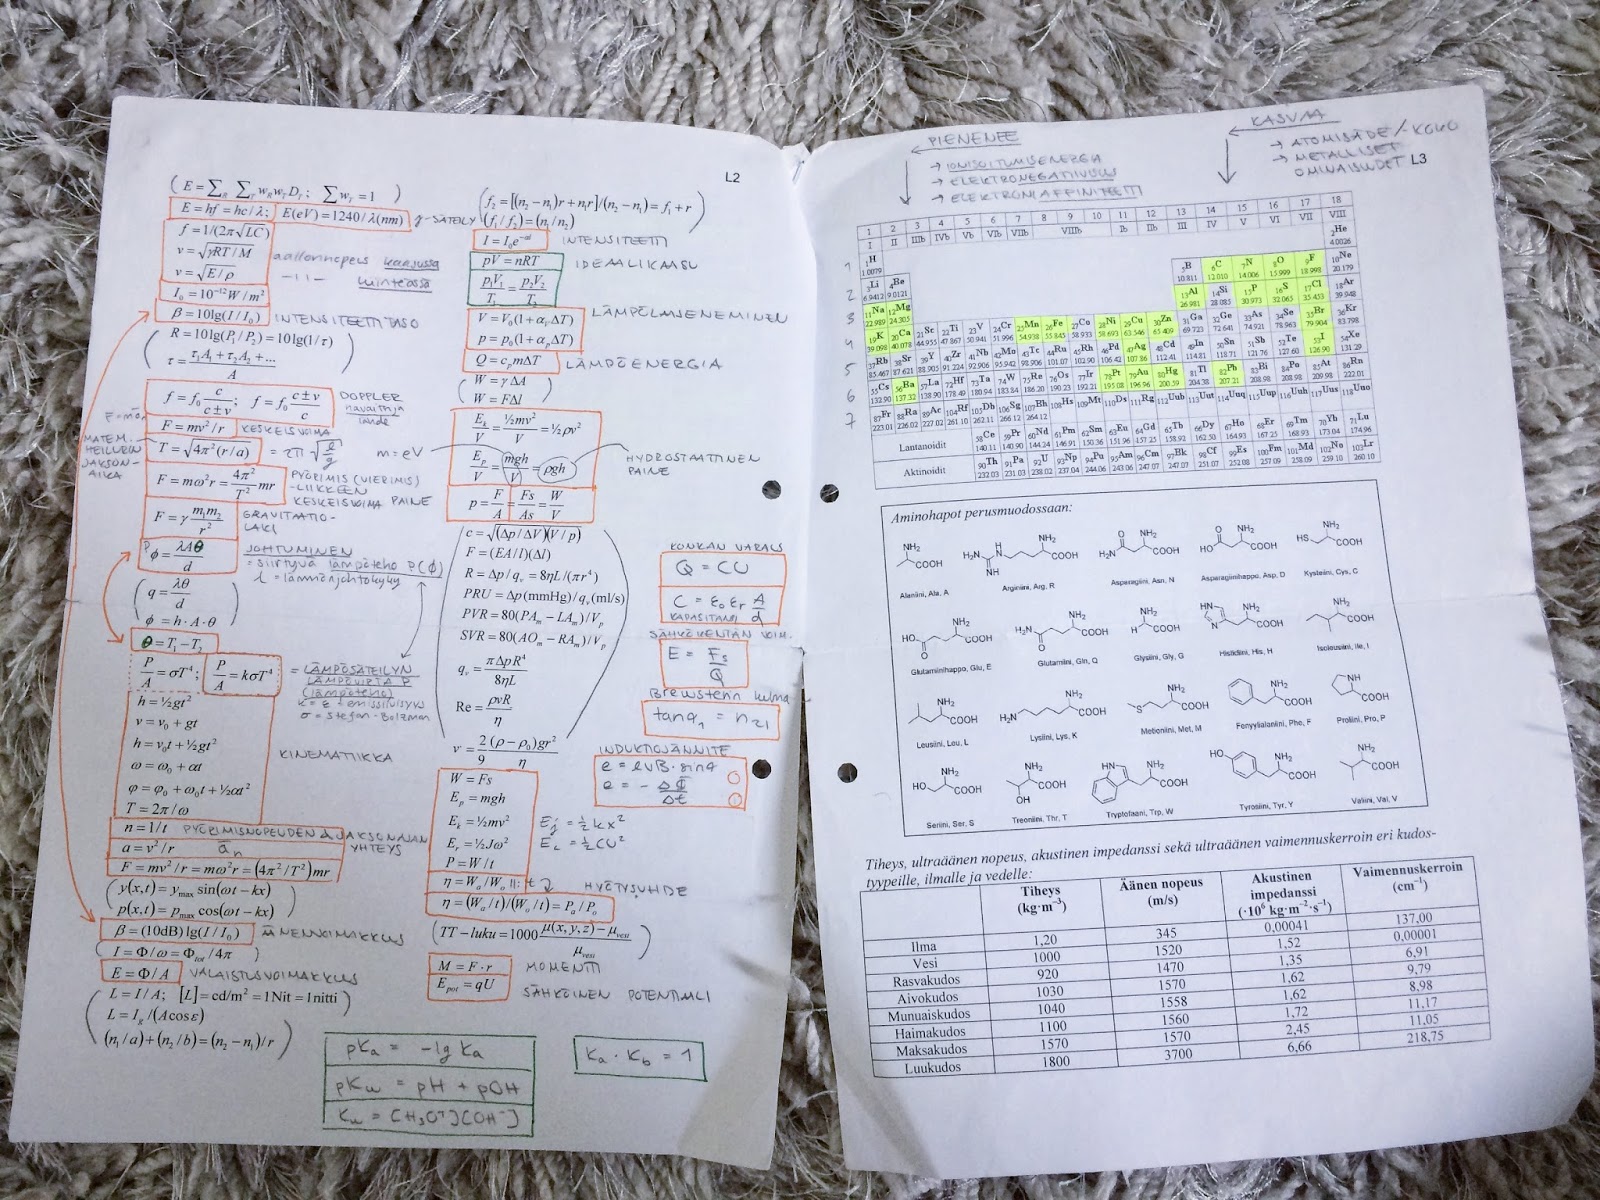 L2
(E = ∑R ∑T wR wT DT ; ∑wT = 1)
E = hf = hc/λ; E(eV) = 1240/λ(nm) γ-SÄTEILY
f = 1/(2π√LC)
v = √γRT/M aallonnopeus kaasussa
v = √E/ρ -11- kiinteässä
I₀ = 10⁻¹²W/m²
β = 10lg(I/I₀) INTENSITEETTITASO
R = 10lg(P₁/P₂) = 10lg(1/τ)
τ = τ₁A₁ + τ₂A₂ + ...
A
f = f₀ c/(c±v); f = f₀ (c±v)/c DOPPLER
havaitsija
F = mv²/r KESKEISVOIMA
MATEM. HEILURIN JAKSON-AIKA
T = √4π²(r/a) = 2π√l/g
F = mω²r = 4π²/T² mr PYÖRIMIS
-LIIKKEEN
KESKEISVOIMA
F = γ m₁m₂/r² GRAVITAATIO-
LAKI
φ = λAθ/d JOHTUMINEN
= siirtyvä lämpöteho P(φ)
λ = lämmönjohtokyky
(q = λθ/d)
φ = h·A·θ
θ = T₁ − T₂
P/A = σT⁴; P/A = kσT⁴ = LÄMPÖSÄTEILYN
LÄMPÖVIRTA P
(lämpöteho)
σ = Stefan-Bolzman
h = ½gt²
v = v₀ + gt
h = v₀t + ½gt²
KINEMATIIKKA
ω = ω₀ + αt
φ = φ₀ + ω₀t + ½αt²
T = 2π/ω
n = 1/t PYÖRIMISNOPEUDEN & JAKSONAJAN
YHTEYS
a = v²/r aₙ
F = mv²/r = mω²r = (4π²/T²)mr
(y(x,t) = ymax sin(ωt − kx)
p(x,t) = pmax cos(ωt − kx))
β = (10dB)lg(I/I₀) ÄÄNENVOIMAKKUUS
(I = Φ/ω = Φtot/4π)
E = Φ/A VALAISTUSVOIMAKKUUS
(L = I/A; [L] = cd/m² = 1Nit = 1nitti)
L = Iε/(A cos ε)
(n₁/a) + (n₂/b) = (n₂ − n₁)/r
(f₂ = [(n₂ − n₁)r + n₁r]/(n₂ − n₁) = f₁ + r
(f₁/f₂) = (n₁/n₂))
I = I₀e⁻ᵃˡ INTENSITEETTI
pV = nRT IDEAALIKAASU
p₁V₁/T₁ = p₂V₂/T₂
V = V₀(1 + αᵥΔT) LÄMPÖLAAJENEMINEN
p = p₀(1 + αₚΔT)
Q = cₚmΔT LÄMPÖENERGIA
(W = γΔA
W = FΔl)
Ek/V = ½mv²/V = ½ρv²
Ep/V = mgh/V = ρgh HYDROSTAATTINEN
PAINE
p = F/A = Fs/As = W/V
c = √(Δp/ΔV)(V/ρ)
F = (EA/l)(Δl)
R = Δp/qv = 8ηL/(πr⁴)
PRU = Δp(mmHg)/qv(ml/s)
PVR = 80(PAm − LAm)/Vp
SVR = 80(AOm − RAm)/Vp
qv = πΔpR⁴/8ηL
Re = ρvR/η
v = 2/9 (ρ − ρ₀)gr²/η
W = Fs
Ep = mgh
Ek = ½mv² Ej = ½kx²
Er = ½Jω² Ec = ½CU²
P = W/t
η = Wa/Wo HYÖTYSUHDE
η = (Wa/t)/(Wo/t) = Pa/Po
(TT − luku = 1000 (μ(x,y,z) − μvesi)/μvesi)
M = F·r MOMENTTI
Epot = qU SÄHKÖINEN POTENTIAALI
KONKAN VARAUS
Q = CU
C = ε₀εr A/d
KAPASITANSSI
SÄHKÖKENTÄN VOIM.
E = Fs/Q
Brewsterin kulma
tanα₁ = n₂₁
INDUKTIOJÄNNITE
e = lvB·sinα
e = −ΔΦ/Δt
pKa = −lg Ka
pKw = pH + pOH
Kw = [H₃O⁺][OH⁻]
Ka · Kb = 1
PIENENEE
→ IONISOITUMISENERGIA
→ ELEKTRONEGATIIVISUUS
→ ELEKTRONIAFFINITEETTI
KASVAA
→ ATOMISÄDE/-KOKO
→ METALLISET
OMINAISUUDET
L3
1 2 3 4 5 6 7 8 9 10 11 12 13 14 15 16 17 18
I II IIIb IVb Vb VIb VIIb VIIIb Ib IIb III IV V VI VII VIII
1 1H 1.0079 2He 4.0026
2 3Li 6.9412 4Be 9.0121 5B 10.811 6C 12.010 7N 14.006 8O 15.999 9F 18.998 10Ne 20.179
3 11Na 22.989 12Mg 24.305 13Al 26.981 14Si 28.085 15P 30.973 16S 32.065 17Cl 35.453 18Ar 39.948
4 19K 39.098 20Ca 40.078 21Sc 44.955 22Ti 47.867 23V 50.941 24Cr 51.996 25Mn 54.938 26Fe 55.845 27Co 58.933 28Ni 58.693 29Cu 63.546 30Zn 65.409 31Ga 69.723 32Ge 72.641 33As 74.921 34Se 78.963 35Br 79.904 36Kr 83.798
5 37Rb 85.467 38Sr 87.621 39Y 88.905 40Zr 91.224 41Nb 92.906 42Mo 95.942 43Tc 98.906 44Ru 101.07 45Rh 102.90 46Pd 106.42 47Ag 107.86 48Cd 112.41 49In 114.81 50Sn 118.71 51Sb 121.76 52Te 127.60 53I 126.90 54Xe 131.29
6 55Cs 132.90 56Ba 137.32 57La 138.90 72Hf 178.49 73Ta 180.94 74W 183.84 75Re 186.20 76Os 190.23 77Ir 192.21 78Pt 195.08 79Au 196.96 80Hg 200.59 81Tl 204.38 82Pb 207.21 83Bi 208.98 84Po 208.98 85At 209.98 86Rn 222.01
7 87Fr 223.01 88Ra 226.02 89Ac 227.02 104Rf 261.10 105Db 262.11 106Sg 266.12 107Bh 264.12 108Hs 109Mt 110Ds 111Rg 112Uub 113Uut 114Uuq 115Uup 116Uuh 117Uus 118Uuo
Lantanoidit 58Ce 140.11 59Pr 140.90 60Nd 144.24 61Pm 146.91 62Sm 150.36 63Eu 151.96 64Gd 157.25 65Tb 158.92 66Dy 162.50 67Ho 164.93 68Er 167.25 69Tm 168.93 70Yb 173.04 71Lu 174.96
Aktinoidit 90Th 232.03 91Pa 231.03 92U 238.02 93Np 237.04 94Pu 244.06 95Am 243.06 96Cm 247.07 97Bk 247.07 98Cf 251.07 99Es 252.08 100Fm 257.09 101Md 258.09 102No 259.10 103Lr 260.10
Aminohapot perusmuodossaan:
Alaniini, Ala, A
Arginiini, Arg, R
Asparagiini, Asn, N
Asparagiinihappo, Asp, D
Kysteiini, Cys, C
Glutamiinihappo, Glu, E
Glutamiini, Gln, Q
Glysiini, Gly, G
Histidiini, His, H
Isoleusiini, Ile, I
Leusiini, Leu, L
Lysiini, Lys, K
Metioniini, Met, M
Fenyylialaniini, Phe, F
Proliini, Pro, P
Seriini, Ser, S
Treoniini, Thr, T
Tryptofaani, Trp, W
Tyrosiini, Tyr, Y
Valiini, Val, V
Tiheys, ultraäänen nopeus, akustinen impedanssi sekä ultraäänen vaimennuskerroin eri kudos-
tyypeille, ilmalle ja vedelle:
Tiheys (kg·m⁻³) Äänen nopeus (m/s) Akustinen impedanssi (·10⁶ kg·m⁻²·s⁻¹) Vaimennuskerroin (cm⁻¹)
Ilma 1,20 345 0,00041 137,00
Vesi 1000 1520 1,52 0,00001
Rasvakudos 920 1470 1,35 6,91
Aivokudos 1030 1570 1,62 9,79
Munuaiskudos 1040 1558 1,62 8,98
Haimakudos 1100 1560 1,72 11,17
Maksakudos 1570 1570 2,45 11,05
Luukudos 1800 3700 6,66 218,75